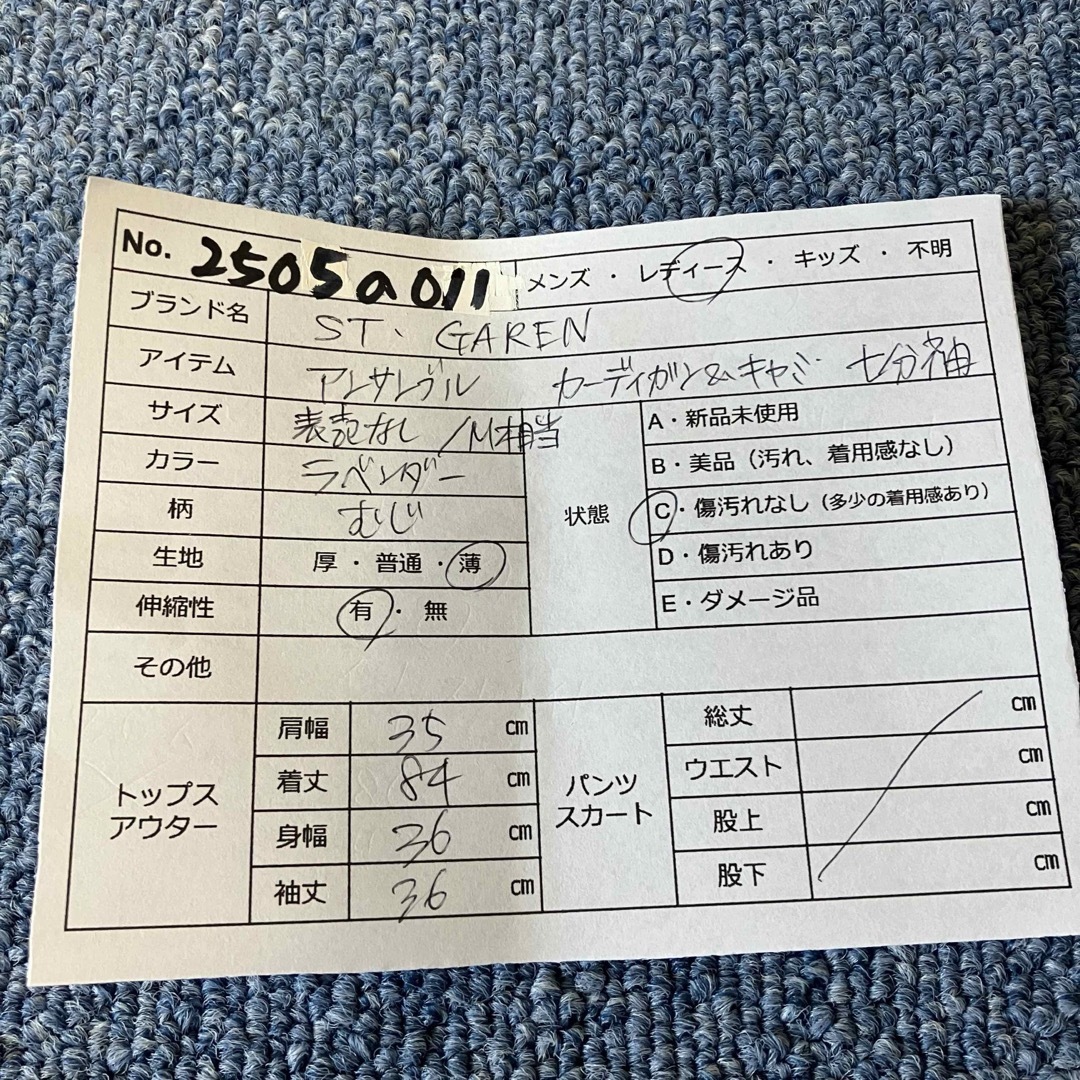 No. 2505a011 メンズ ・ レディース ・ キッズ ・ 不明
ブランド名 ST. GAREN
アイテム アンサンブル カーディガン&キャミ 七分袖
サイズ 表記なし /M相当
カラー ラベンダー
柄 むじ
生地 厚 ・ 普通 ・ 薄
伸縮性 有 ・ 無
状態
A・新品未使用
B・美品（汚れ、着用感なし）
C・傷汚れなし（多少の着用感あり）
D・傷汚れあり
E・ダメージ品
その他
トップス
アウター
肩幅 35 cm
着丈 84 cm
身幅 36 cm
袖丈 36 cm
パンツ
スカート
総丈 cm
ウエスト cm
股上 cm
股下 cm